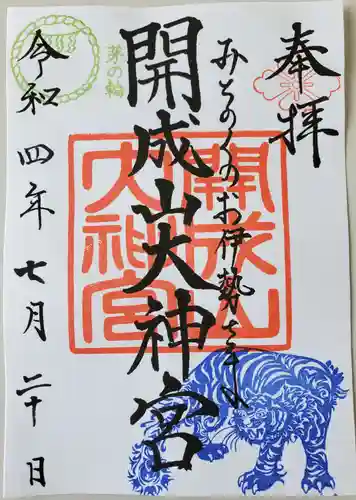 奉拝
みちのくのお伊勢さま
開成山大神宮
開成山
大神宮
茅の輪
令和四年七月二十日